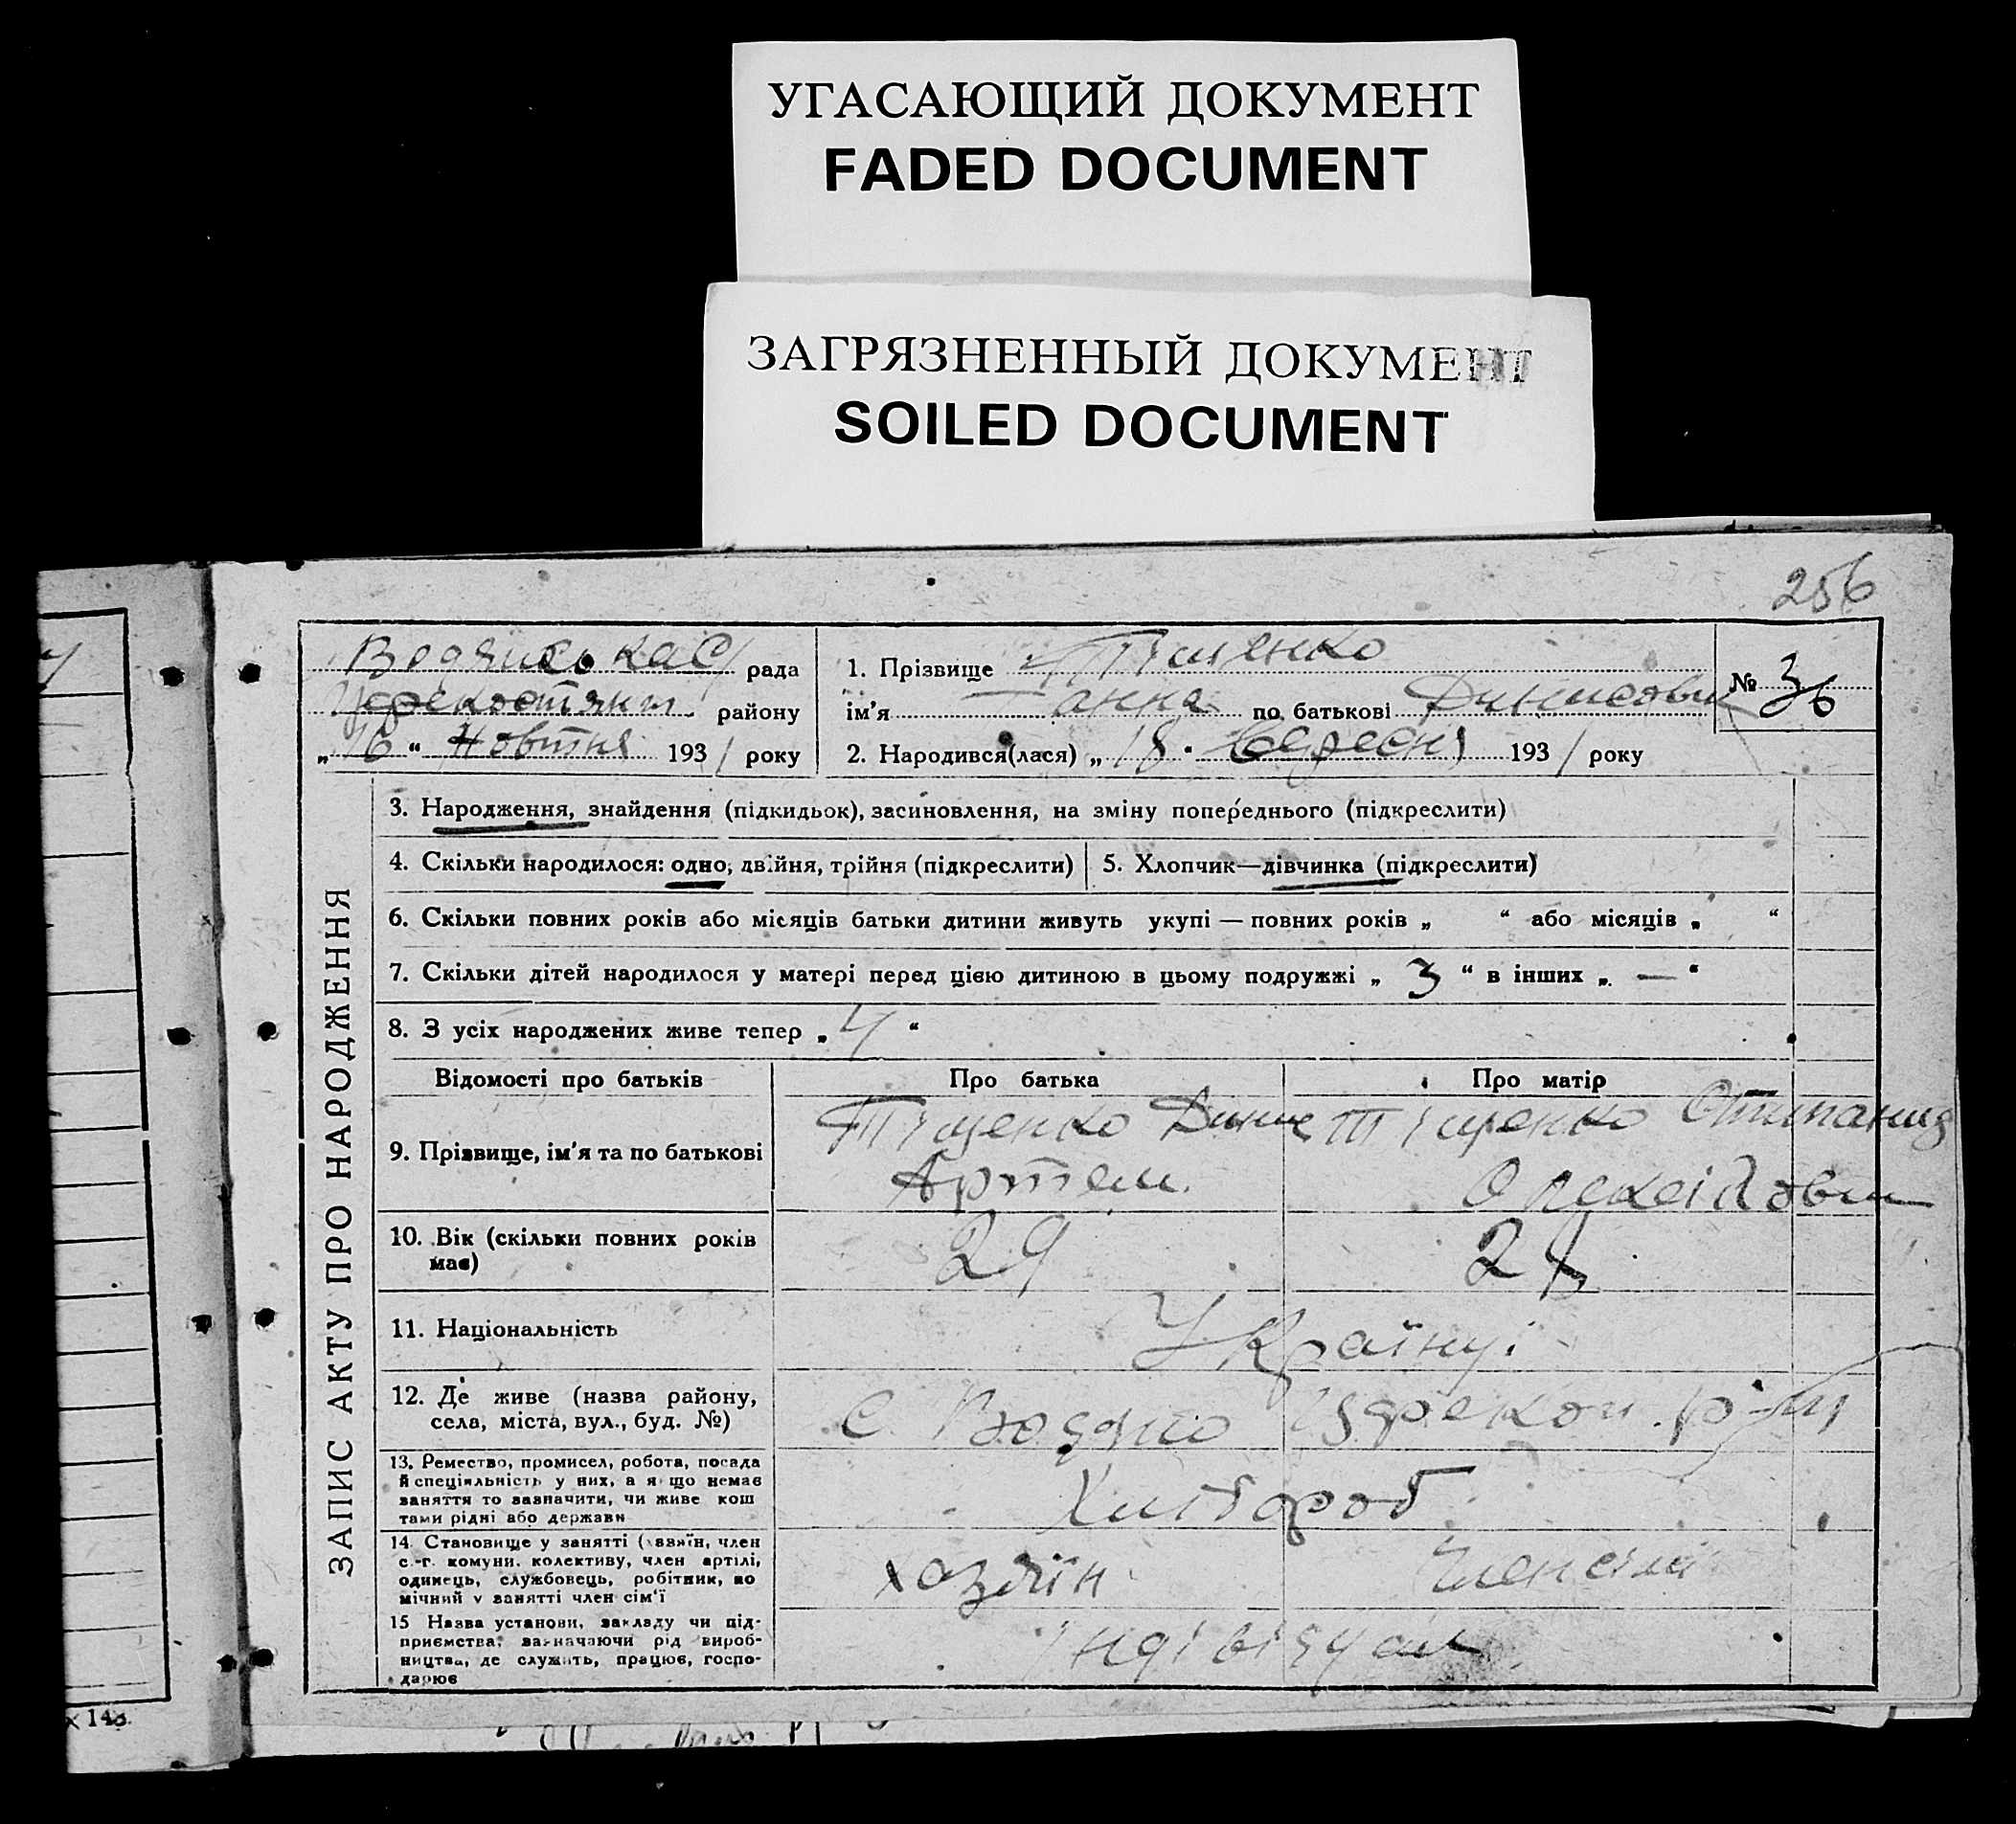 УГАСАЮЩИЙ ДОКУМЕНТ
FADED DOCUMENT
ЗАГРЯЗНЕННЫЙ ДОКУМЕНТ
SOILED DOCUMENT
256
Водянська С/рада
району
„16“ Жовтня 1931 року
1. Прізвище Тіщенко
ім'я анна по батькові Динисовн
2. Народився(лася) „18“ Вересня 1931 року
№ 36
ЗАПИС АКТУ ПРО НАРОДЖЕННЯ
3. Народження, знайдення (підкидьок), засиновлення, на зміну попереднього (підкреслити)
4. Скільки народилося: одно, двійня, трійня (підкреслити)
5. Хлопчик—дівчинка (підкреслити)
6. Скільки повних років або місяців батьки дитини живуть укупі — повних років „ “ або місяців „ “
7. Скільки дітей народилося у матері перед цією дитиною в цьому подружжі „ 3 “ в інших „ — “
8. З усіх народжених живе тепер „ 4 “
Відомості про батьків
Про батька
Про матір
9. Прізвище, ім'я та по батькові
Тіщенко Динис
Артем.
Тіщенко
10. Вік (скільки повних років
має)
29
11. Національність
Українці
12. Де живе (назва району,
села, міста, вул., буд. №)
С. Водяно
13. Ремество, промисел, робота, посада
й спеціяльність у них, а якщо немає
заняття то зазначити, чи живе кош
тами рідні або держави
Хлібороб
14. Становище у занятті (хазяїн, член
с.-г. комуни, колективу, член артілі,
одинець, службовець, робітник, по
мічний у занятті член сім'ї
хазяїн
член сімї
15 Назва установи, закладу чи під-
приємства, зазначаючи рід вироб-
ництва, де служить, працює, госпо-
дарює
індівідуал
x 148.